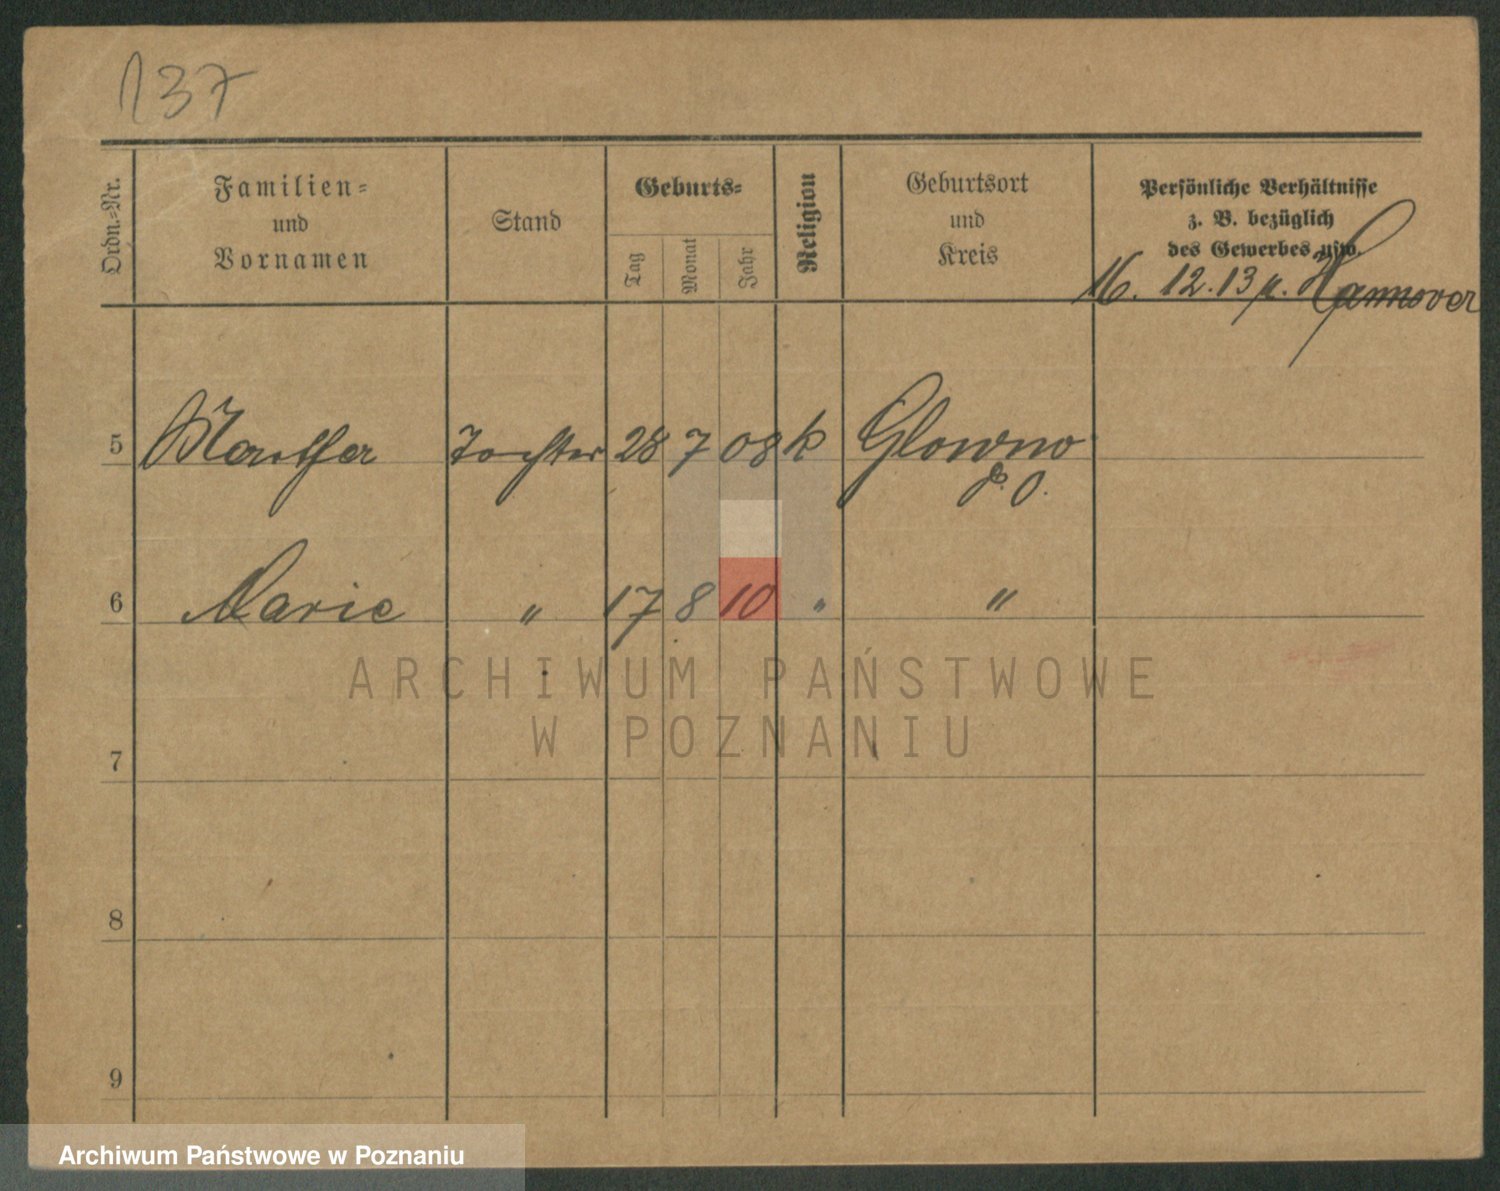 137
Ordn.=Nr.
Familien=
und
Vornamen
Stand
Geburts=
Tag
Monat
Jahr
Religion
Geburtsort
und
Kreis
Persönliche Verhältnisse
z. B. bezüglich
des Gewerbes usw.
16. 12. 13 n. Hannover
5 Martha Tochter 28 7 08 k Glowno
P. O.
6 Marie " 17 8 10 " "
ARCHIWUM PAŃSTWOWE
W POZNANIU
7
8
9
Archiwum Państwowe w Poznaniu